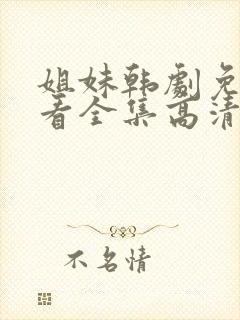 姐妹韩剧免
看全集高清
不名情